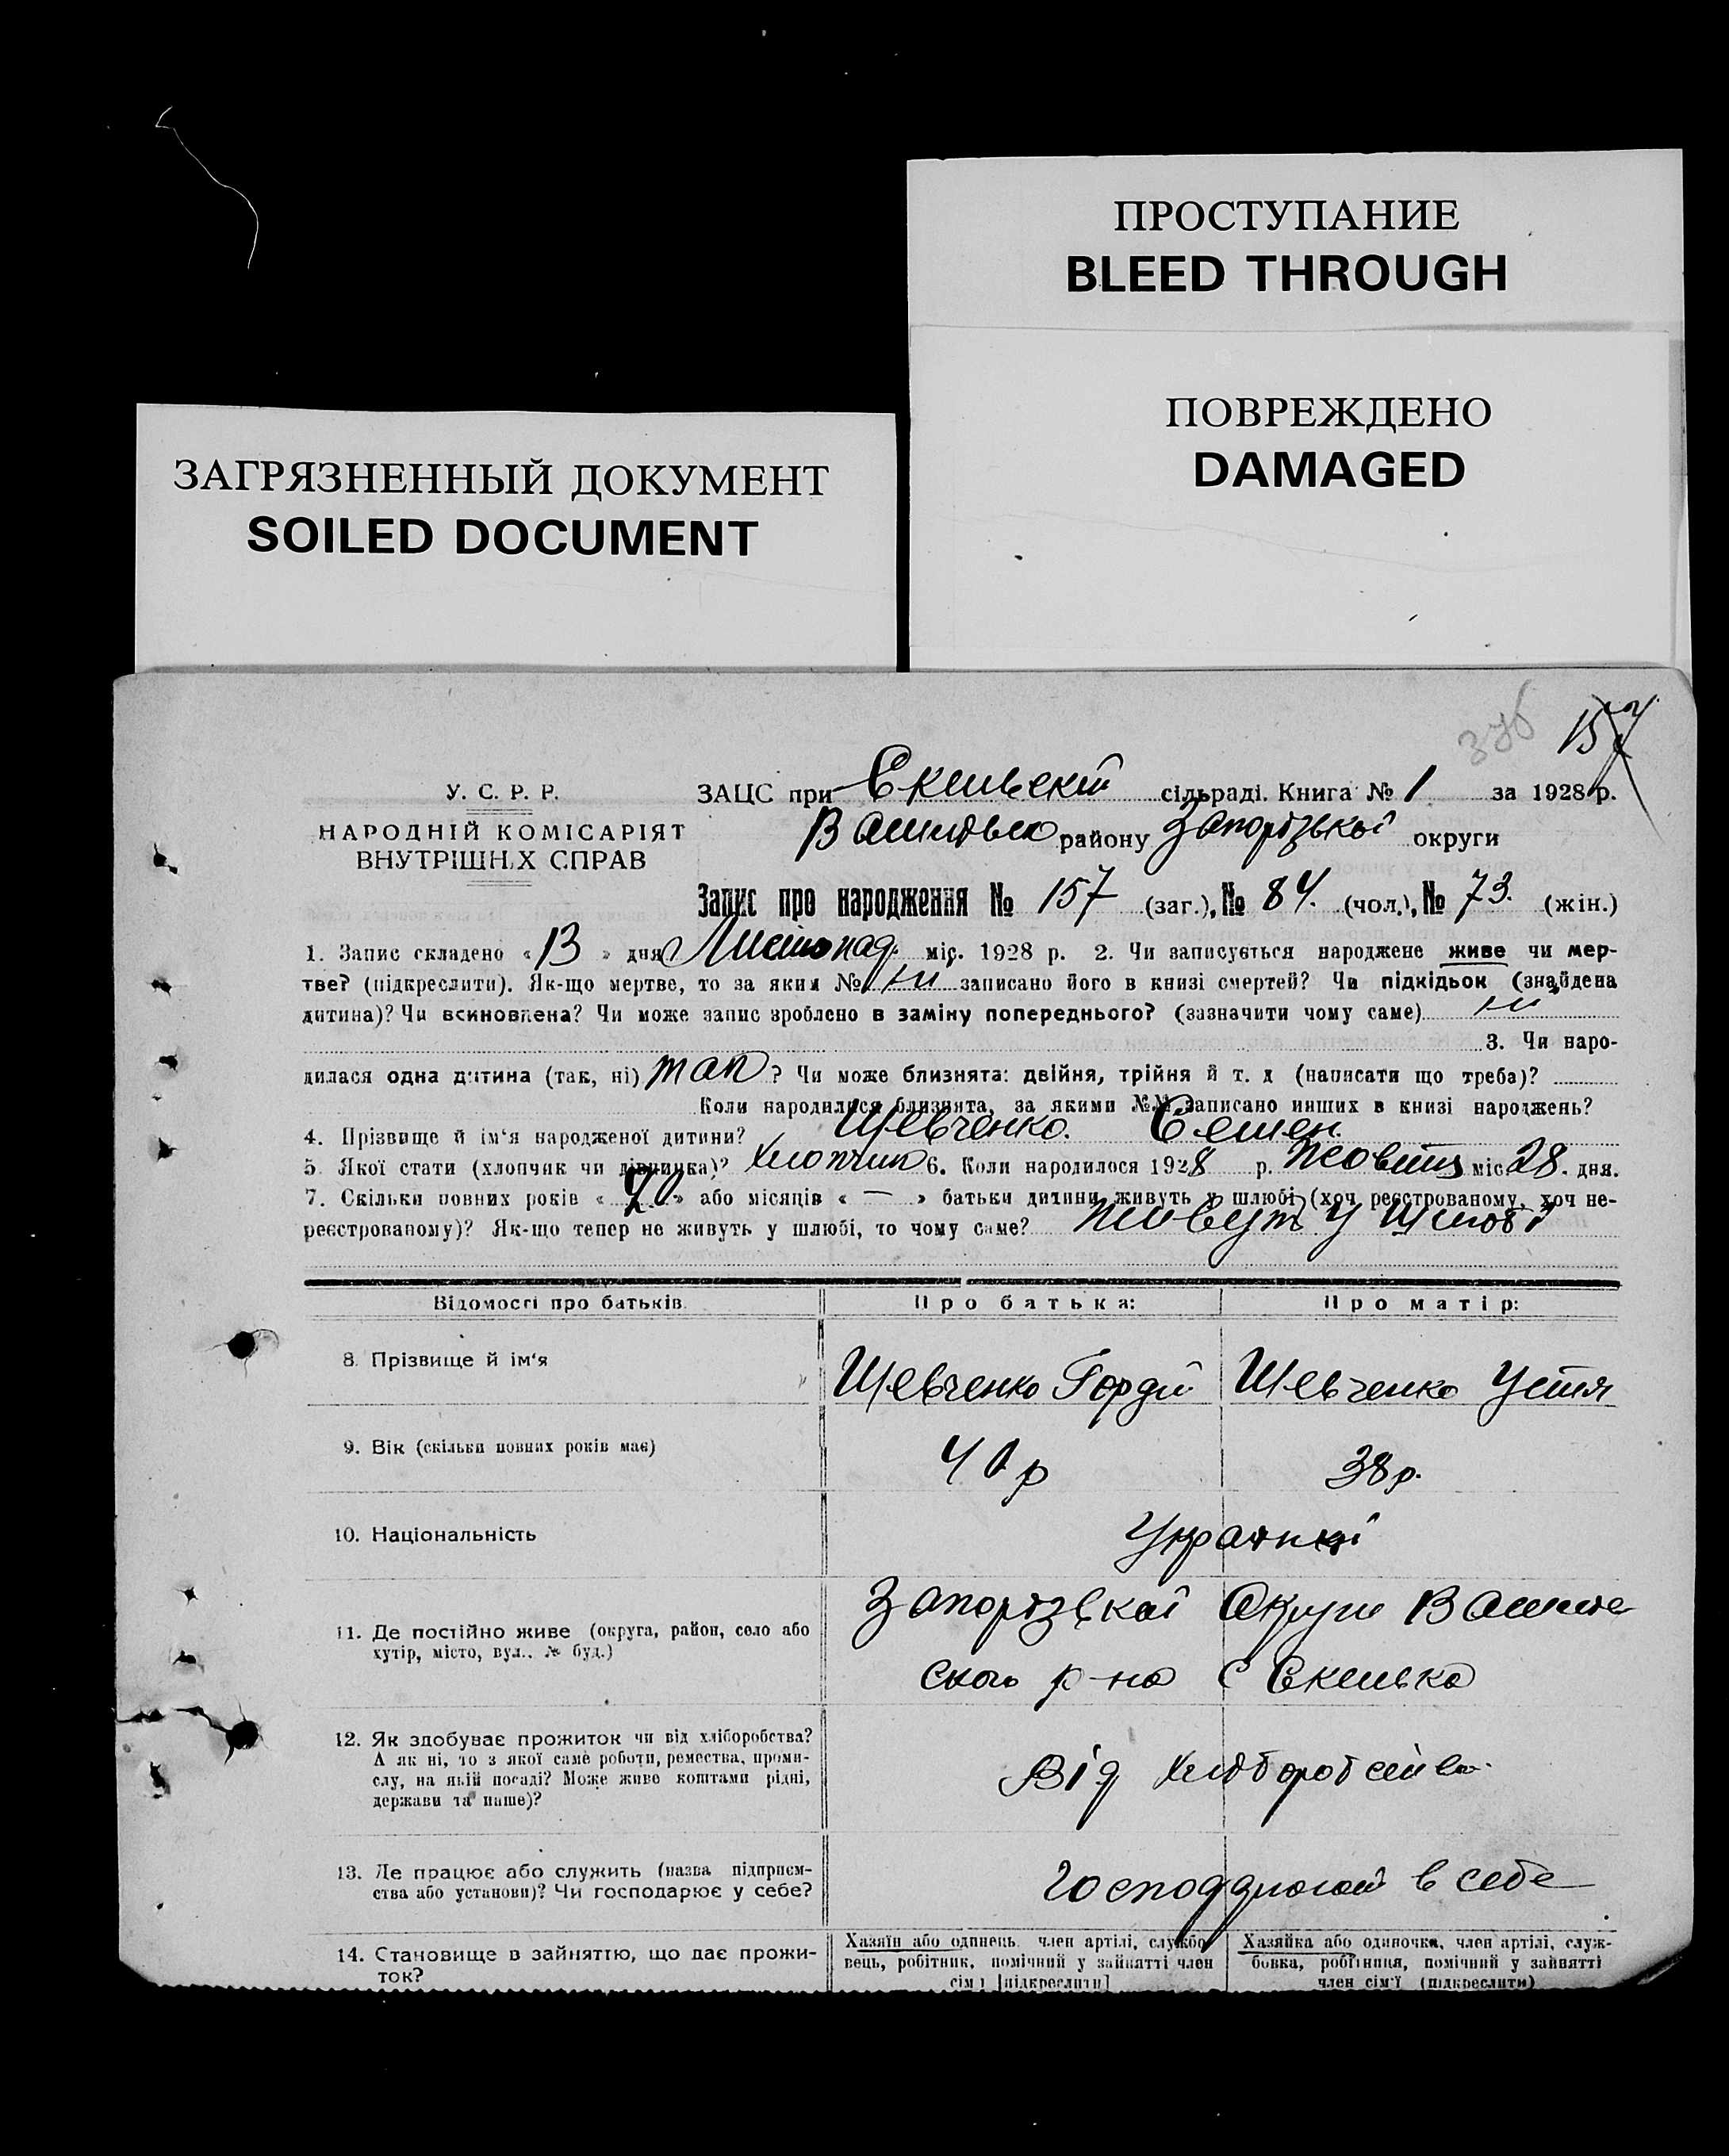 ПРОСТУПАНИЕ
BLEED THROUGH
ПОВРЕЖДЕНО
DAMAGED
ЗАГРЯЗНЕННЫЙ ДОКУМЕНТ
SOILED DOCUMENT
157
У. С. Р. Р.
НАРОДНІЙ КОМІСАРІЯТ
ВНУТРІШНІХ СПРАВ
ЗАЦС при сільраді. Книга № 1 за 1928 р.
району Запорізької округи
Запис про народження № 157 (заг.), № 84. (чол.), № 73. (жін.)
1. Запис складено « 13 » дня Листопад. міс. 1928 р. 2. Чи записується народжене живе чи мер-
тве? (підкреслити). Як-що мертве, то за яким № ні записано його в книзі смертей? Чи підкідьок (знайдена
дитина)? Чи всиновлена? Чи може запис зроблено в заміну попереднього? (зазначити чому саме) ні
3. Чи наро-
дилася одна дитина (так, ні) так? Чи може близнята: двійня, трійня й т. д (написати що треба)?
Коли народилися близнята, за якими №№ записано инших в книзі народжень?
4. Прізвище й ім'я народженої дитини? Шевченко. Семен
5. Якої стати (хлопчик чи дівчинка)? хлопчик 6. Коли народилося 1928 р. Жовтня міс 28. дня.
7. Скільки повних років « » або місяців « — » батьки дитини живуть у шлюбі (хоч реєстрованому, хоч не-
реєстрованому)? Як-що тепер не живуть у шлюбі, то чому саме? живуть у шлюбі
Відомості про батьків Про батька: Про матір:
8. Прізвище й ім'я Шевченко Гордій Шевченко Устя
9. Вік (скільки повних років має) 40 р 38 р.
10. Національність Українці
11. Де постійно живе (округа, район, село або
хутір, місто, вул.. № буд.)
Запорізької Округи
ського р-на с
12. Як здобуває прожиток чи від хліборобства?
А як ні, то з якої саме роботи, ремества, проми-
слу, на якій посаді? Може живе коштами рідні,
держави та инше)?
Від хліборобства
13. Де працює або служить (назва підприєм-
ства або установи)? Чи господарює у себе?
в себе
14. Становище в зайняттю, що дає прожи-
ток?
Хазяїн або одинець. член артілі, службо-
вець, робітник, помічний у зайнятті член
сім'ї [підкреслити]
Хазяйка або одиночка, член артілі, служ-
бовка, робітниця, помічний у зайнятті
член сім'ї (підкреслити)